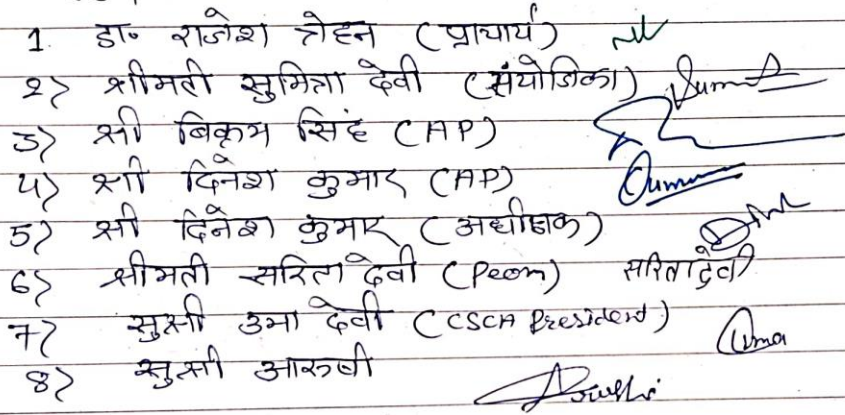 1. डा॰ राजेश त्रेहन (प्राचार्य)
2> श्रीमती सुमित्रा देवी (संयोजिका)
3> श्री बिक्रम सिंह (AP)
4> श्री दिनेश कुमार (AP)
5> श्री दिनेश कुमार (अधीक्षक)
6> श्रीमती सरिता देवी (Peon) सरिता देवी
7> सुश्री उमा देवी (CSCA President) Uma
8> सुश्री आरुषी